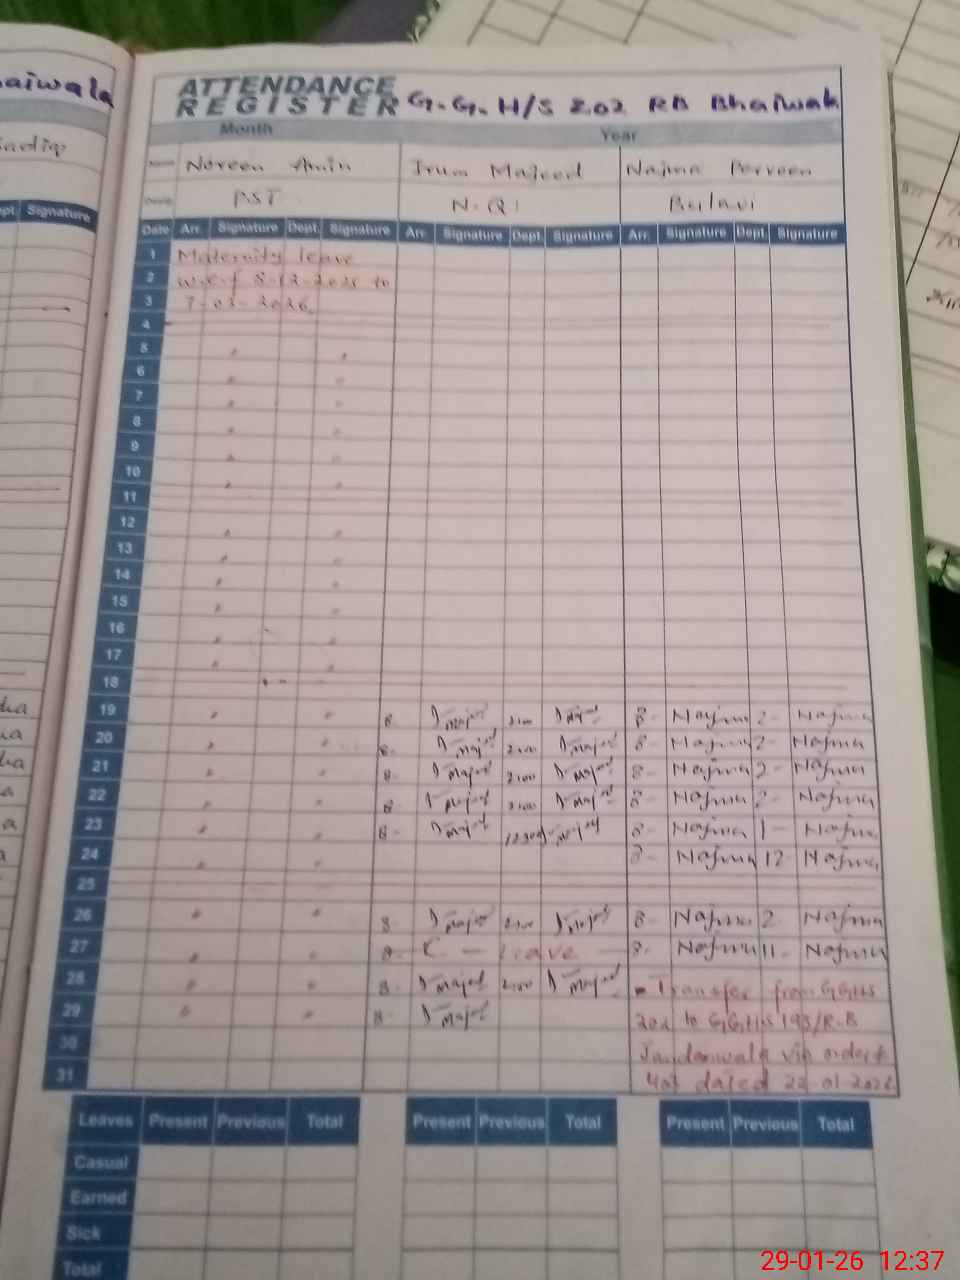 ATTENDANCE
REGISTER G.G.H/S 202 RB Bhaiwala
Month Year
Name Noreen Amin Irum Majeed Najma Perveen
PST. N.Q
Date Arr. Signature Dept. Signature Arr. Signature Dept. Signature Arr. Signature Dept. Signature
1 Maternity leave
2 w.e.f 8-12-2025 to
3 7-03-2026
4
5
6
7
8
9
10
11
12
13
14
15
16
17
18
19 8- I Majeed 2:00 I Majeed 8- Najma 2- Najma
20 8- I Majeed 2:00 I Majeed 8- Najma 2- Najma
21 8- I Majeed 2:00 I Majeed 8- Najma 2- Najma
22 8 I Majeed 2:00 I Majeed 8- Najma 2- Najma
23 8- I Majeed I Majeed 8- Najma 1- Najma
24 8- Najma 12- Najma
25
26 8- I Majeed 2:00 I Majeed 8- Najma 2- Najma
27 C - Leave - 8- Najma 11- Najma
28 8- I Majeed 2:00 I Majeed Transfer from GGHS
29 8- I Majeed 202 to GGHS 193/R.B
30 via order #
31 dated 22-01-2026
Leaves Present Previous Total Present Previous Total Present Previous Total
Casual
Earned
Sick
Total
aiwala
Sadiq
Dept. Signature
29-01-26 12:37